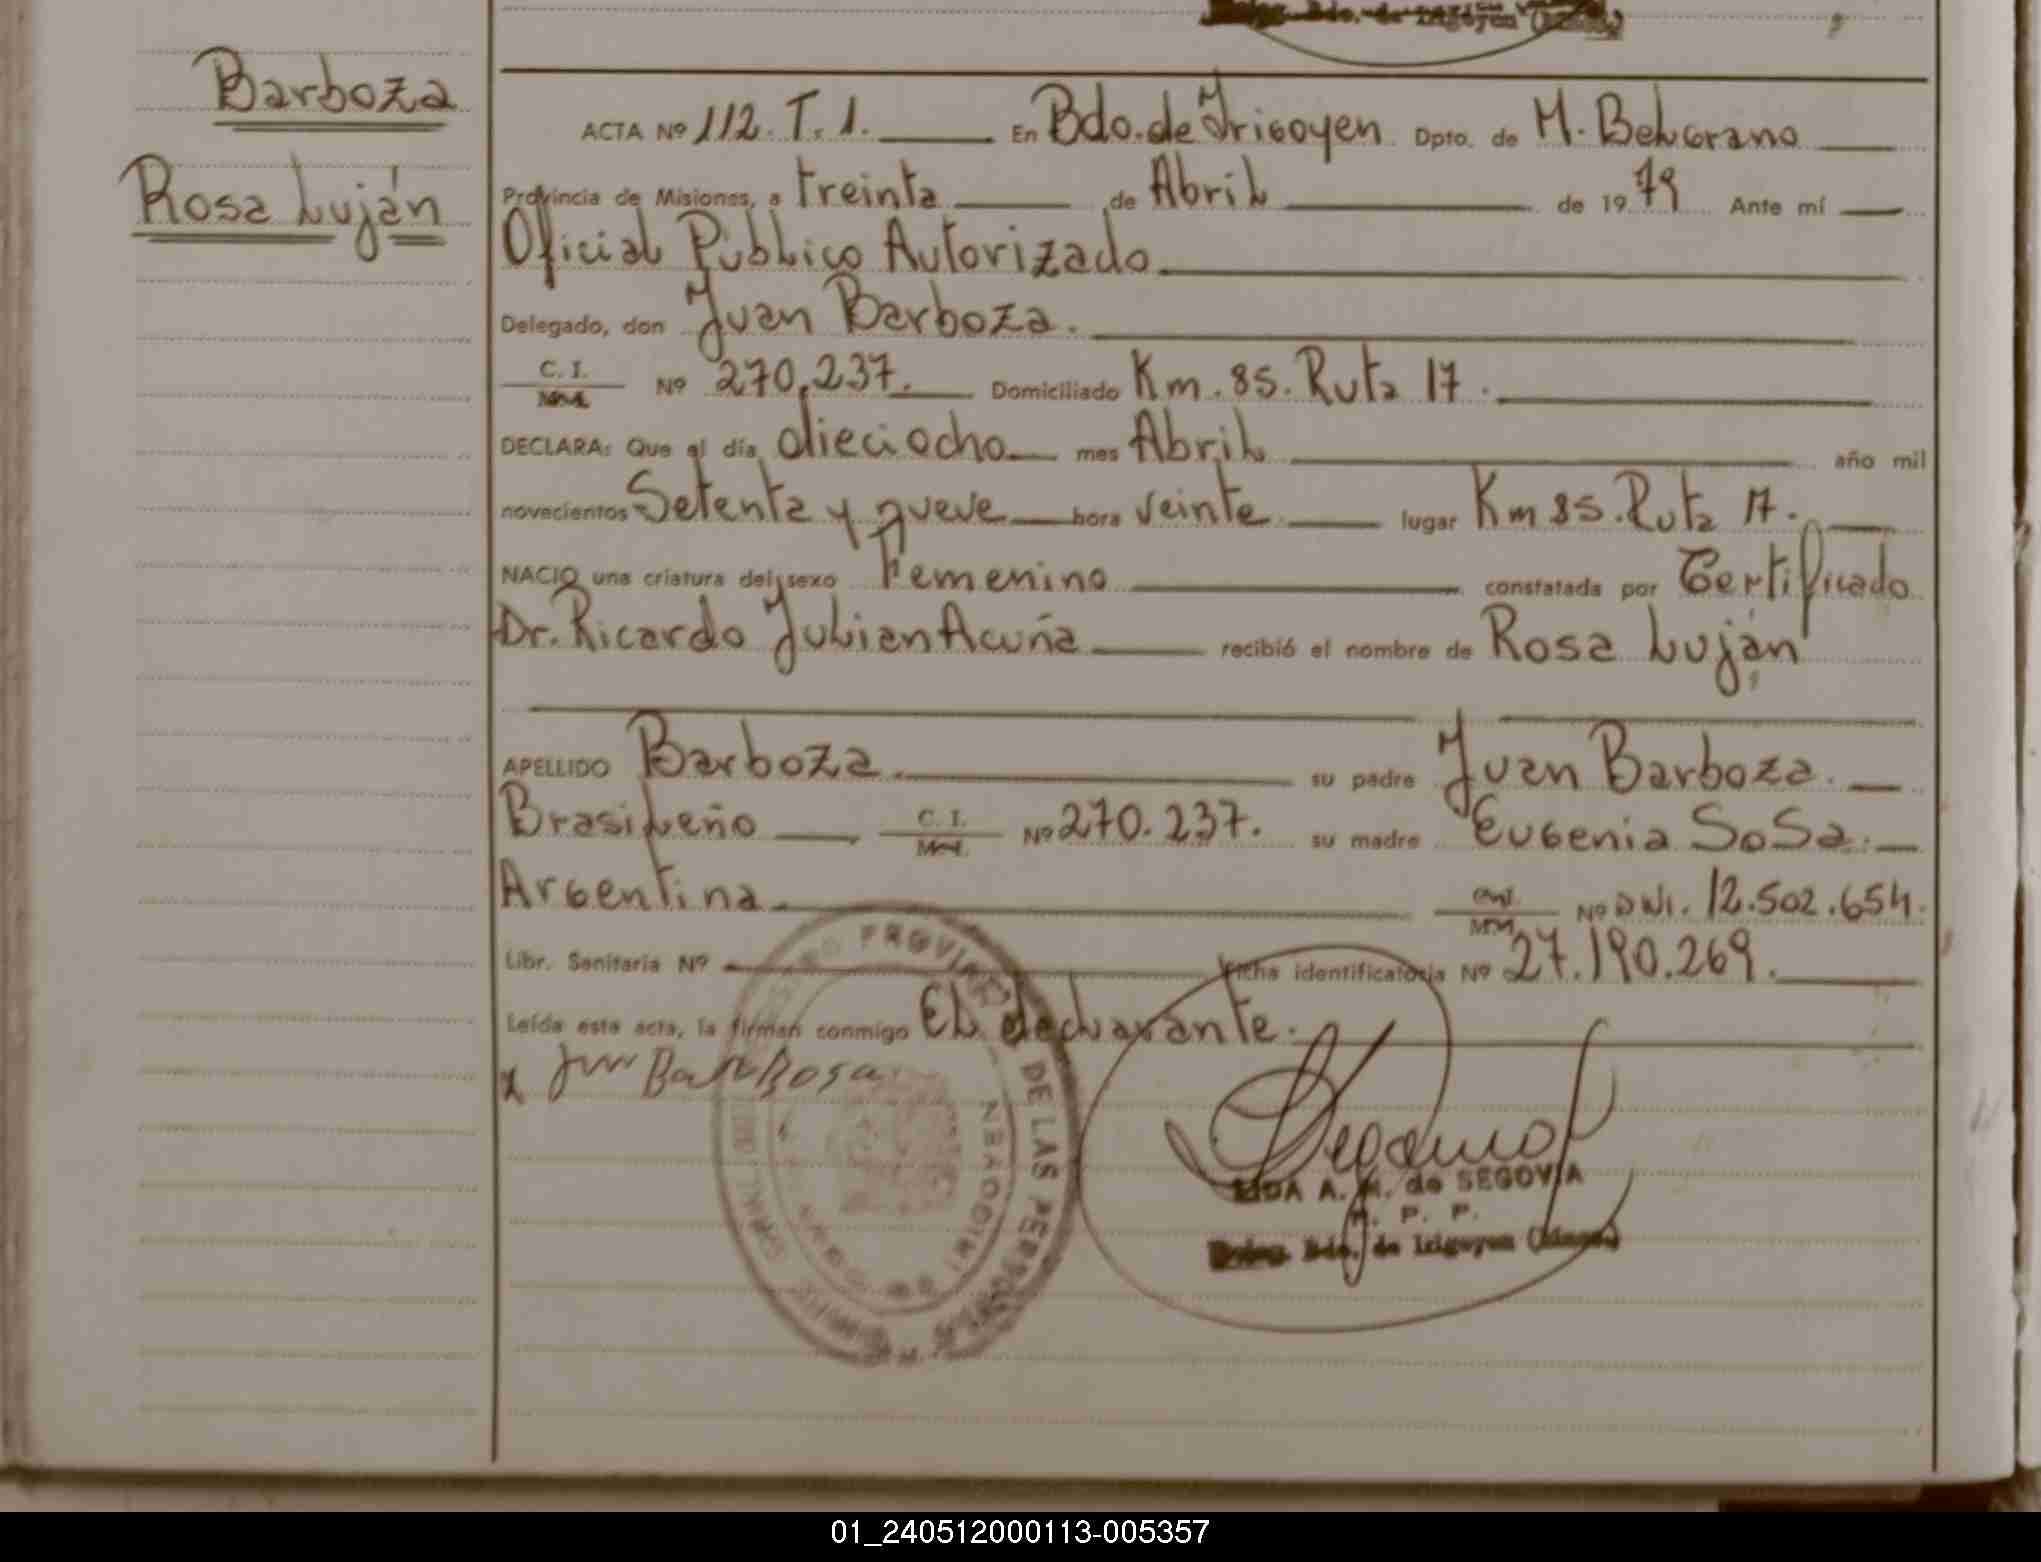 Barboza
Rosa Luján
ACTA Nº 112. T. 1. En Bdo. de Irigoyen Dpto. de M. Belgrano
Provincia de Misiones, a treinta de Abril de 1979 Ante mí
Oficial Público Autorizado
Delegado, don Juan Barboza.
C. I. Nº 270.237. Domiciliado Km. 85. Ruta 17.
DECLARA: Que el día dieciocho mes Abril año mil
novecientos Setenta y nueve hora veinte lugar Km 85. Ruta 17.
NACIO una criatura del sexo Femenino constatada por Certificado
Dr. Ricardo Julian Acuña recibió el nombre de Rosa Luján
APELLIDO Barboza su padre Juan Barboza.
Brasileño C. I. Nº 270.237. su madre Eugenia Sosa.
Argentina Nº DNI. 12.502.654.
Libr. Sanitaria Nº Ficha identificatoria Nº 27.190.269.
Leída esta acta, la firman conmigo El declarante.
x Juan Barbosa
PROVINCIAL DE LAS PERSONAS
A. M. de SEGOVIA
P. P.
Deleg. Bdo. de Irigoyen (Mnes.)
01_240512000113-005357